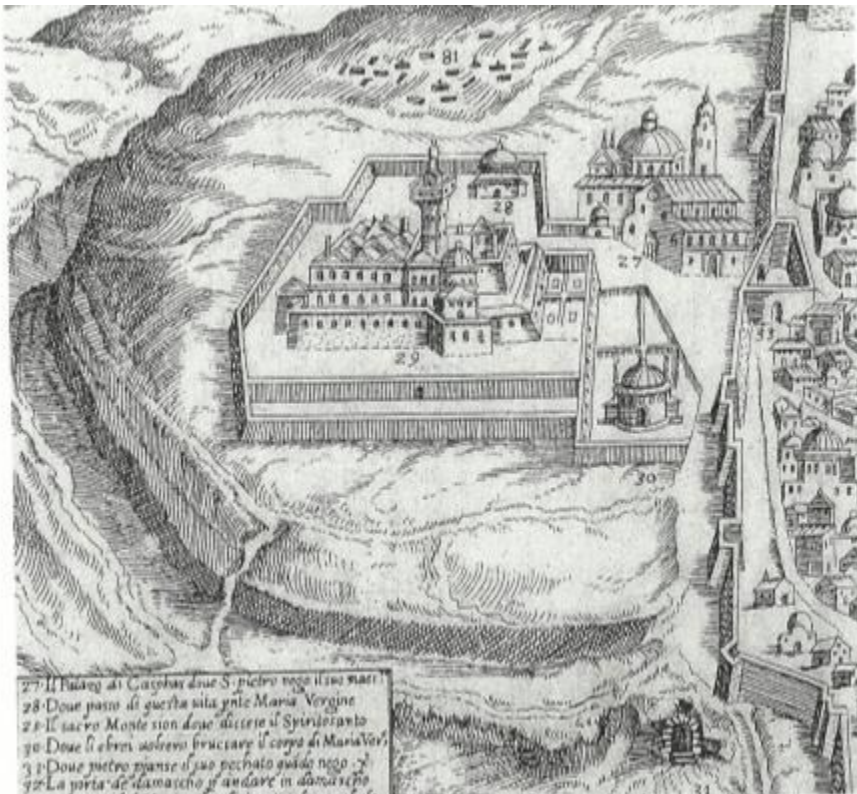 81
28
27
29
30
31
27·Il Palazo di Caiphas doue S. pietro nego il suo maes
28·Doue passo di questa uita Maria Vergine
Il sacro Monte sion doue discese il Spirito santo
30·Doue li ebrei uolsero bruciare il corpo di Maria Ver
31·Doue pietro pianse il suo pechato quādo nego
La porta de damascho andare in damascho